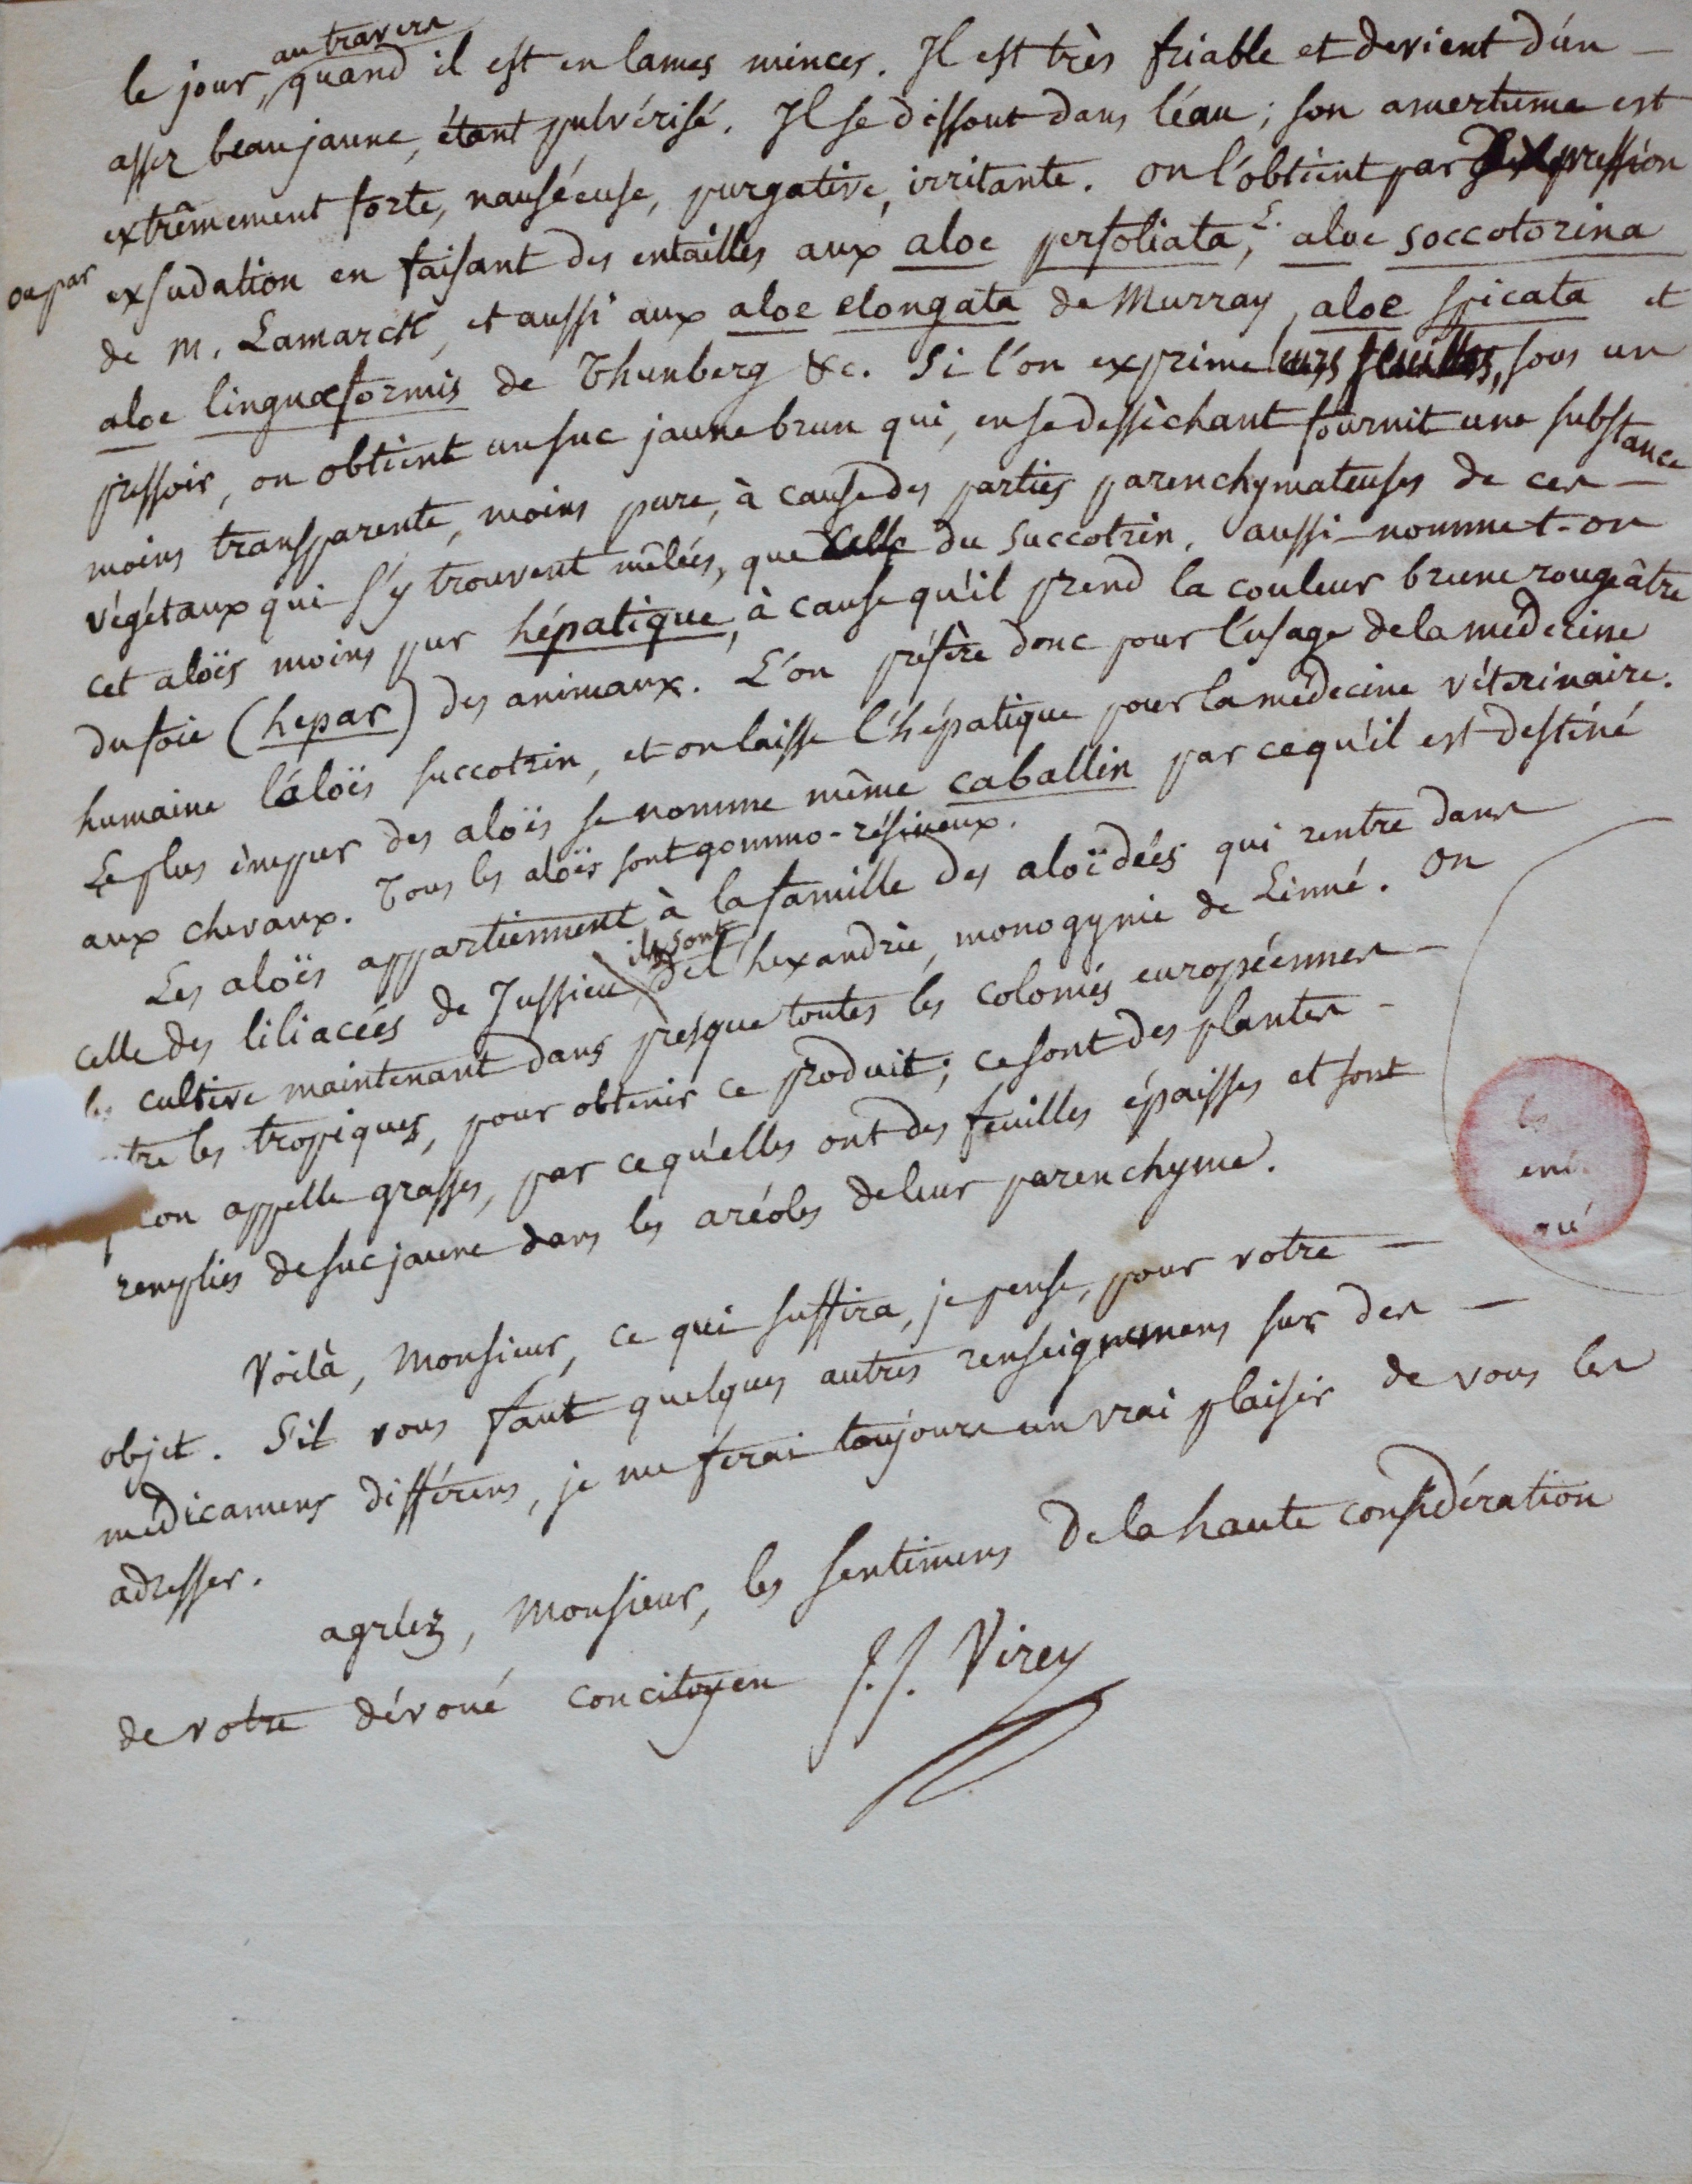 au travers
le jour, quand il est en lames minces. Il est très friable et devient d'un
assez beau jaune, étant pulvérisé. Il se dissout dans l'eau ; son amertume est
extrêmement forte, nauséeuse, purgative, irritante. on l'obtient par expression
ou par exsudation en faisant des entailles aux aloe perfoliata, L. aloe soccotorina
de M. Lamarck, et aussi aux aloe elongata de Murray, aloe spicata et
aloe linguæformis de Thunberg &c. Si l'on exprime leurs feuilles, sous un
pressoir, on obtient un suc jaune brun qui, en se dessèchant fournit une substance
moins transparente, moins pure, à cause des parties parenchymateuses de ces
végétaux qui s'y trouvent mêlées, que celle du succotrin. aussi nomme t-on
cet aloës moins pur hépatique, à cause qu'il prend la couleur brune rougeâtre
du foie (hepar) des animaux. L'on préfère donc pour l'usage de la médecine
humaine l'aloës succotrin, et on laisse l'hépatique pour la médecine vétérinaire.
Le plus impur des aloës se nomme même caballin par ce qu'il est destiné
aux chevaux. Tous les aloës sont gommo-résineux.
Les aloës appartiennent à la famille des aloïdées qui rentre dans
celle des liliacées de Jussieu, ils sont de l'hexandrie, monogynie de Linné. On
les cultive maintenant dans presque toutes les colonies européennes
tre les tropiques, pour obtenir ce produit ; ce sont des plantes
on appelle grasses, par ce qu'elles ont des feuilles épaisses et sont
remplies de suc jaune dans les aréoles de leur parenchyme.
Voilà, Monsieur, ce qui suffira, je pense, pour votre
objet. S'il vous faut quelques autres renseignemens sur des
médicamens différens, je me ferai toujours un vrai plaisir de vous les
adresser.
agréez, Monsieur, les sentimens de la haute considération
de votre dévoué concitoyen J. J. Virey